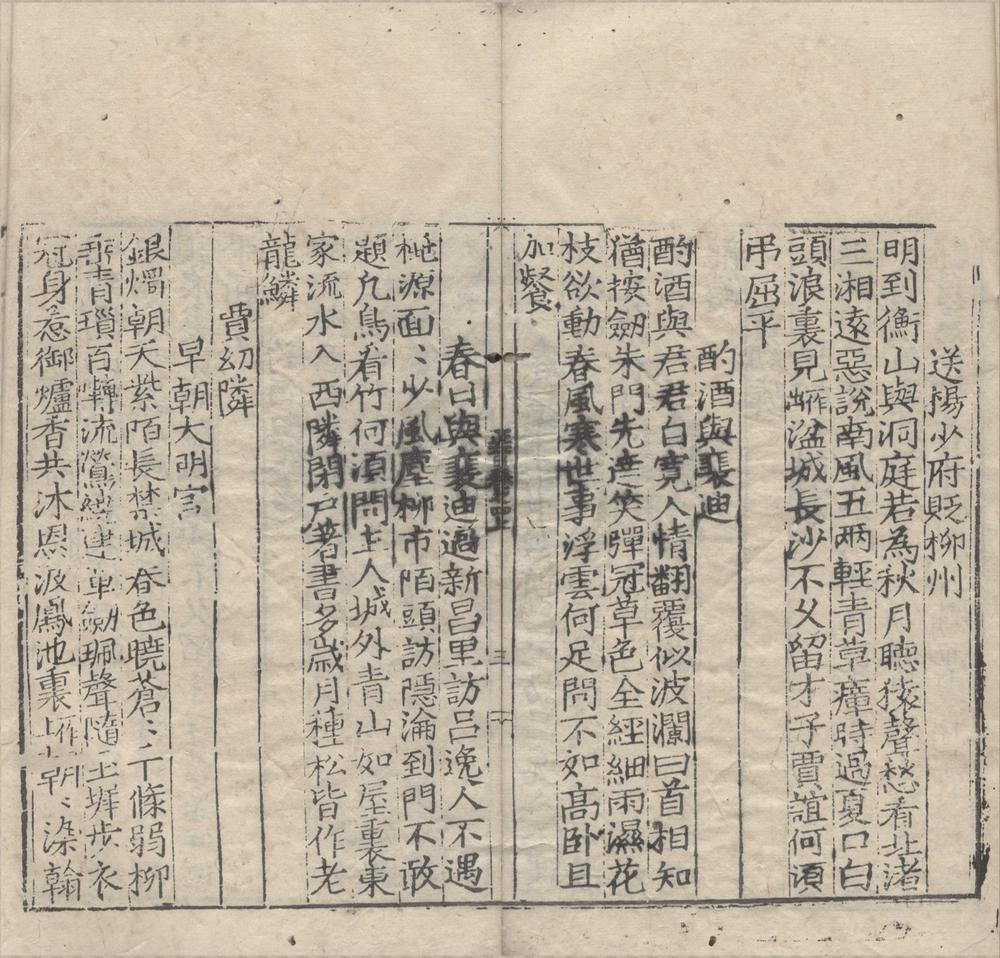 送楊少府貶柳州
明到衡山與洞庭若為秋月聴猿聲愁看北渚
三湘遠惡說南風五兩輕青草瘴時過夏口白
頭浪裏見一作出湓城長沙不久留才子賈誼何湏
吊屈平
酌酒與裴迪
酌酒與君君自寬人情翻覆似波瀾曰首相知
猶按劒朱門先達笑彈冠草色全經細雨濕花
枝欲動春風寒世事浮雲何足問不如髙卧且
加餐
三
春日與裴迪過新昌里訪呂逸人不遇
桃源面〻少風塵柳市陌頭訪隱淪到門不敢
題凡鳥看竹何湏問主人城外青山如屋裏東
家流水入西隣閉戸著書多歲月種松皆作老
龍鱗
賈幼隣
早朝大明宫
銀燭朝天紫陌長禁城春色曉蒼〻千條弱柳
垂青瑣百囀流鶯繞建章劒珮聲隨玉墀步衣
冠身惹御爐香共沐恩波鳳池裏上一作朝〻染翰